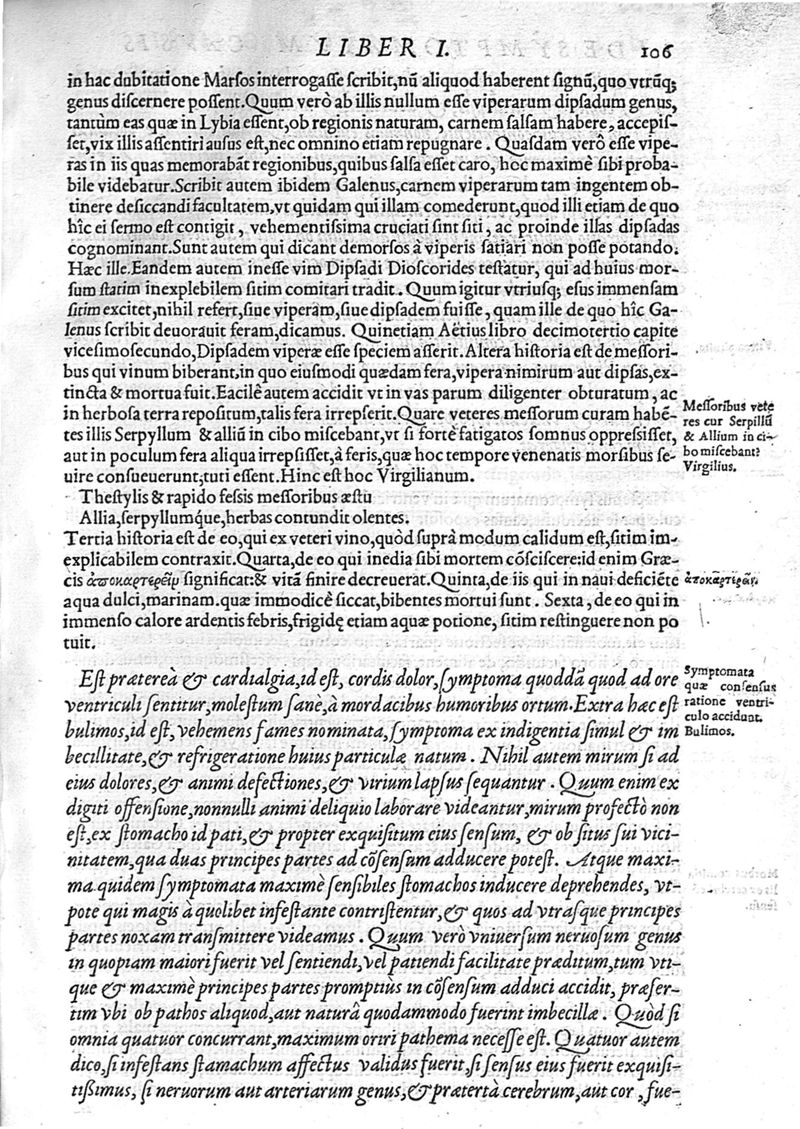 LIBER I. 106
in hac dubitatione Marsos interrogasse scribit, nū aliquod haberent signū, quo vtrūq;
genus discernere possent. Quum verò ab illis nullum esse viperarum dipsadum genus,
tantùm eas quæ in Lybia essent, ob regionis naturam, carnem salsam habere, accepis-
set, vix illis assentiri ausus est, nec omnino etiam repugnare. Quasdam verô esse vipe-
ras in iis quas memorabāt regionibus, quibus salsa esset caro, hoc maximè sibi proba-
bile videbatur. Scribit autem ibidem Galenus, carnem viperarum tam ingentem ob-
tinere desiccandi facultatem, vt quidam qui illam comederunt, quod illi etiam de quo
hîc ei sermo est contigit, vehementissima cruciati sint siti, ac proinde illas dipsadas
cognominant. Sunt autem qui dicant demorsos à viperis satiari non posse potando.
Hæc ille. Eandem autem inesse vim Dipsadi Dioscorides testatur, qui ad huius mor-
sum statim inexplebilem sitim comitari tradit. Quum igitur vtriusq; esus immensam
sitim excitet, nihil refert, siue viperam, siue dipsadem fuisse, quam ille de quo hîc Ga-
lenus scribit deuorauit feram, dicamus. Quinetiam Aëtius libro decimotertio capite
vicesimosecundo, Dipsadem viperæ esse speciem asserit. Altera historia est de messori-
bus qui vinum biberant, in quo eiusmodi quædam fera, vipera nimirum aut dipsas, ex-
tincta & mortua fuit. Eacilè autem accidit vt in vas parum diligenter obturatum, ac
in herbosa terra repositum, talis fera irrepserit. Quare veteres messorum curam habē-
tes illis Serpyllum & alliū in cibo miscebant, vt si fortè fatigatos somnus oppressisset,
aut in poculum fera aliqua irrepsisset, à feris, quæ hoc tempore venenatis morsibus sę-
uire consueuerunt, tuti essent. Hinc est hoc Virgilianum.
Messoribus vete
res cur Serpillū
& Allium in ci-
bo miscebant?
Virgilius.
Thestylis & rapido fessis messoribus æstu
Allia, serpyllumq́ue, herbas contundit olentes.
Tertia historia est de eo, qui ex veteri vino, quòd suprà modum calidum est, sitim im-
explicabilem contraxit. Quarta, de eo qui inedia sibi mortem cōsciscere: id enim Græ-
cis ἀποκαρτερεῖμ significat: & vitā finire decreuerat. Quinta, de iis qui in naui deficiēte
ἀποκαρτερεῖν.
aqua dulci, marinam. quæ immodicè siccat, bibentes mortui sunt. Sexta, de eo qui in
immenso calore ardentis febris, frigidę etiam aquæ potione, sitim restinguere non po
tuit.
Est prætereà & cardialgia, id est, cordis dolor, symptoma quoddā quod ad ore
ventriculi sentitur, molestum sanè, à mordacibus humoribus ortum. Extra hæc est
bulimos, id est, vehemens fames nominata, symptoma ex indigentia simul & im
becillitate, & refrigeratione huius particulæ natum. Nihil autem mirum si ad
Symptomata
quæ consensus
ratione ventri-
culo accidunt.
Bulimos.
eius dolores, & animi defectiones, & virium lapsus sequantur. Quum enim ex
digiti offensione, nonnulli animi deliquio laborare videantur, mirum profectò non
est, ex stomacho id pati, & propter exquisitum eius sensum, & ob situs sui vici-
nitatem, qua duas principes partes ad cōsensum adducere potest. Atque maxi-
ma quidem symptomata maximè sensibiles stomachos inducere deprehendes, vt-
pote qui magis à quolibet infestante contristentur, & quos ad vtrasque principes
partes noxam transmittere videamus. Quum verò vniuersum neruosum genus
in quopiam maiori fuerit vel sentiendi, vel patiendi facilitate præditum, tum vti-
que & maximè principes partes promptiùs in cōsensum adduci accidit, præser-
tim vbi ob pathos aliquod, aut naturâ quodammodo fuerint imbecillæ. Quòd si
omnia quatuor concurrant, maximum oriri pathema necesse est. Quatuor autem
dico, si infestans stamachum affectus validus fuerit, si sensus eius fuerit exquisi-
tißimus, si neruorum aut arteriarum genus, & prætertà cerebrum, aut cor, fue-